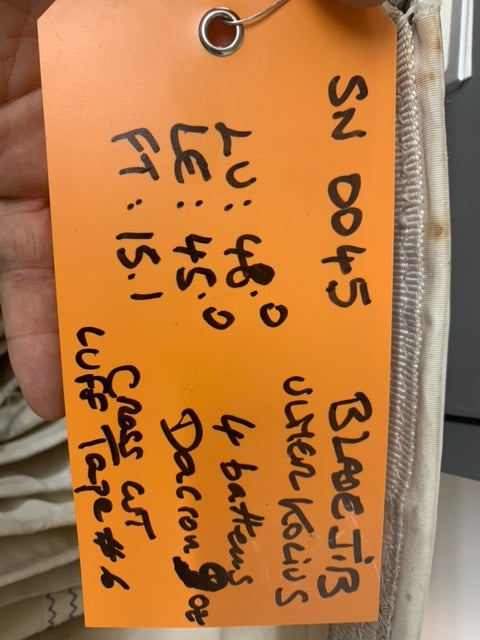 SN 0045
LU: 48.0
LE: 45.0
FT: 15.1
BLADE JIB
ULMER KOLIUS
4 battens
Dacron 9 oz
Cross CUT
LUFF Tape #6